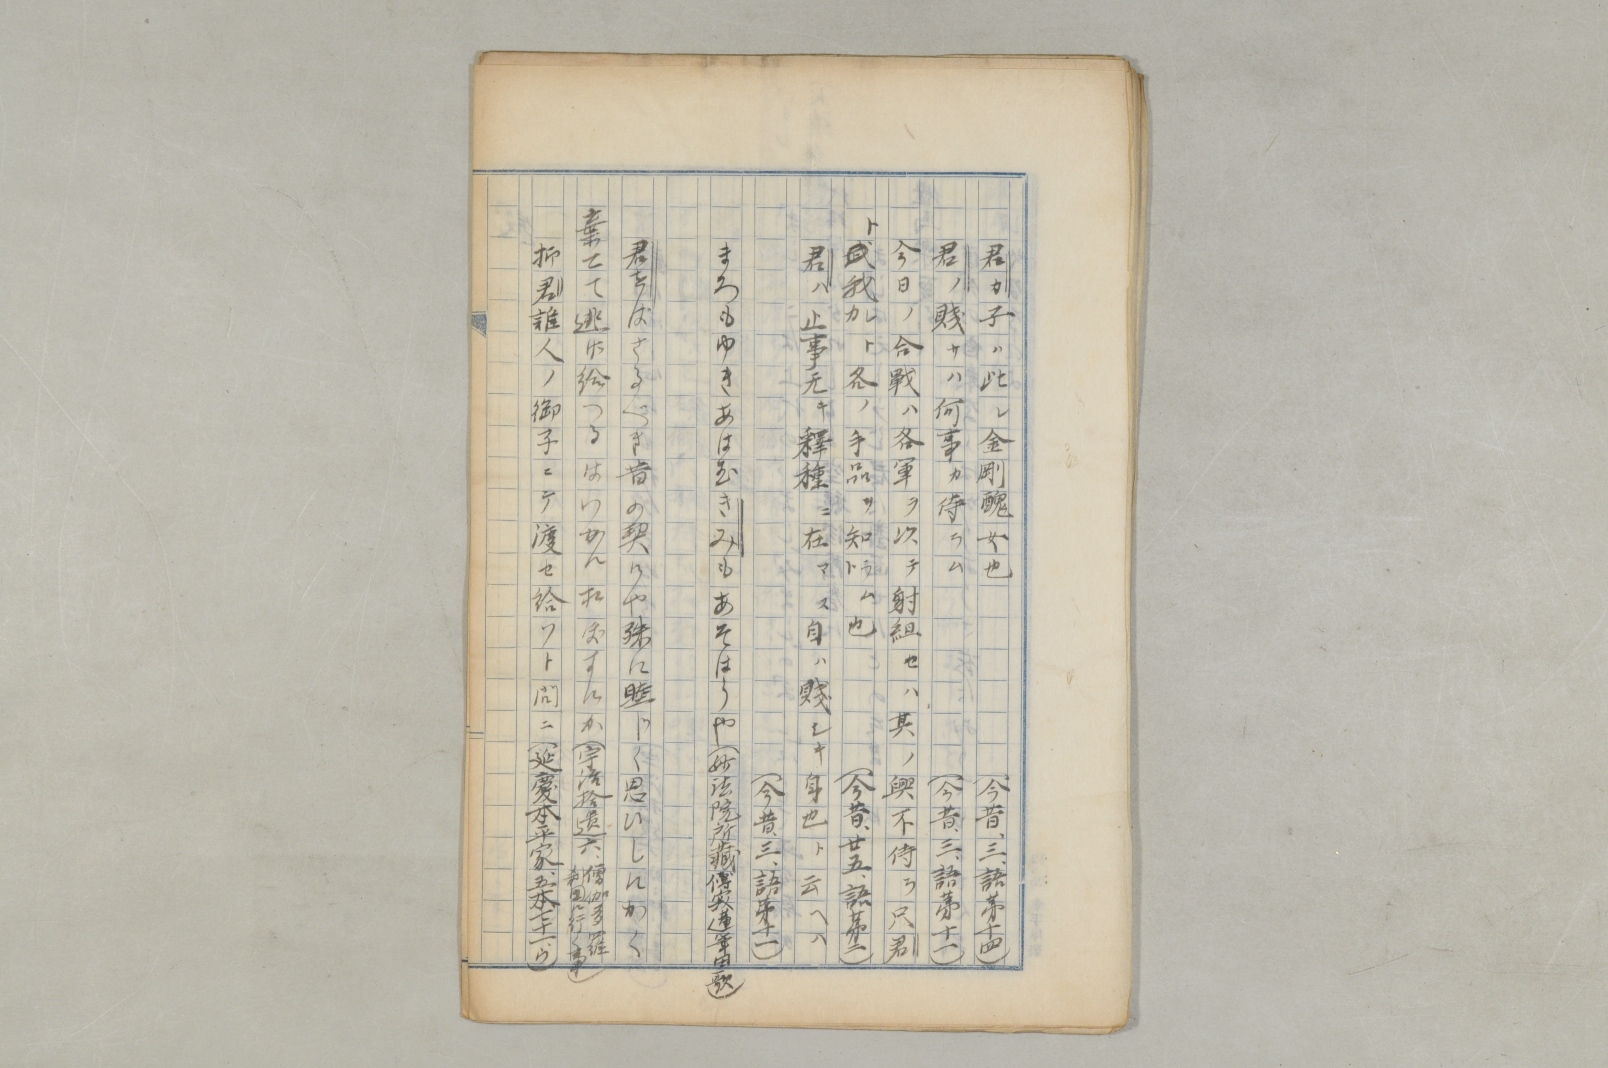 君カ子ハ此レ金剛醜女也(今昔、三、語第十四)
君ノ賤サハ何事カ侍ラム(今昔、三、語第十一)
今日ノ合戰ハ各軍ヲ以テ射組セハ其ノ興不侍ラ只君
ト我カレト各ノ手品ヲ知ラムト也(今昔、廿五、語第三)
君ハ止事无キ釋種ニ在マス自ハ賤シキ身也ト云ヘハ
(今昔、三、語第十一)
まろもゆきあはむきみもあそはうや(妙法院所藏
君をばさるべき昔の契にや殊に睦じく思ひしにかく
棄てて逃げ給つるはいかんおぼすにか(宇治拾遺六、僧伽多羅刹国に行く事)
抑君誰人ノ御子ニテ渡セ給フト問ニ(延慶本平家、五本